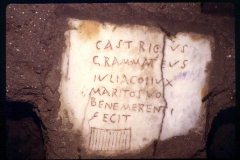 CASTRICIUS
GRAMMATEUS
IULIACONIUX
MARITOSUO
BENEMERENTI
FECIT